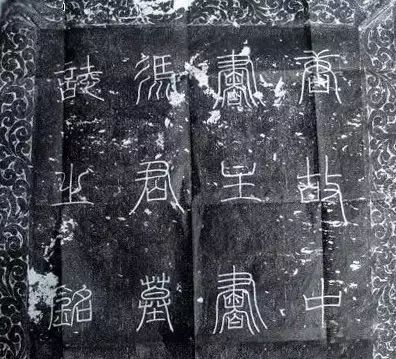 唐故中
書主書
馮君墓
誌之銘